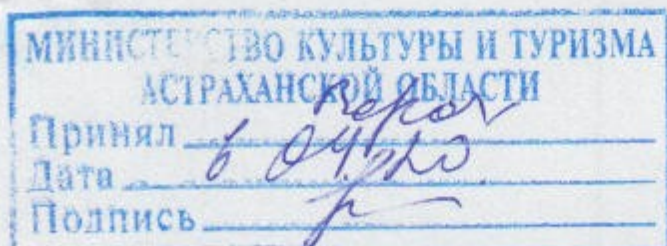 МИНИСТЕРСТВО КУЛЬТУРЫ И ТУРИЗМА
АСТРАХАНСКОЙ ОБЛАСТИ
Принял
Дата 6 04.
Подпись